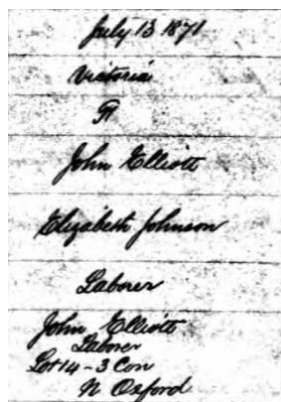 July 13 1871
Victoria
F
John Elliott
Elizabeth Johnson
Laborer
John Elliott
Laborer
Lot 14 - 3 Con
N Oxford